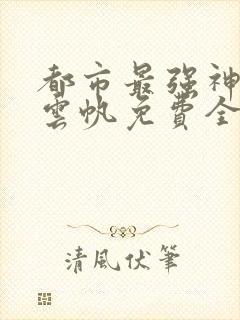 都市最强神
雲帆免費全
清風伏筆